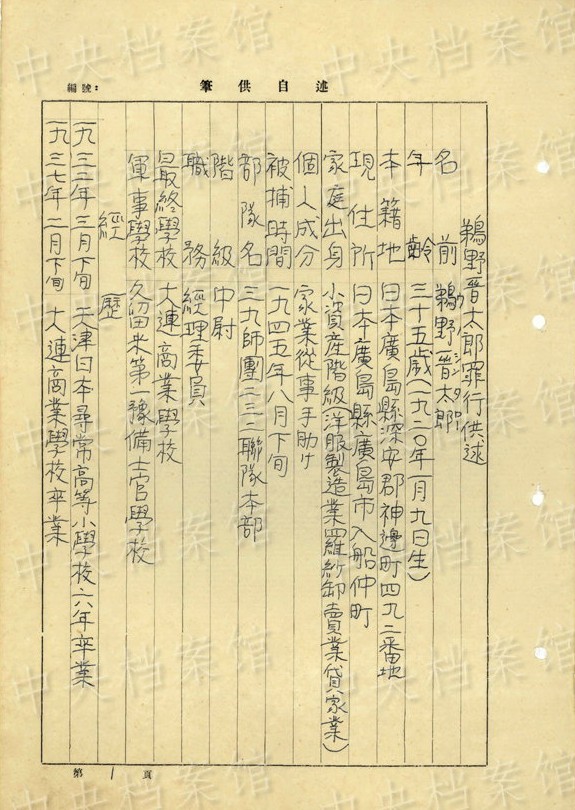 編號：
筆供述自
鵜野晋太郎罪行供述
名前 鵜野晋太郎
年齢 三十五歳(一九二〇年一月九日生)
本籍地 日本廣島縣深安郡神邊町四九二番地
現住所 日本廣島縣廣島市入船仲町
家庭出身 小資産階級(洋服製造業羅紗卸賣業貸家業)
個人成分 家業從事手助け
被捕時間 一九四五年八月下旬
部隊名 三九師團二三二聯隊本部
階級 中尉
職務 經理委員
最終學校 大連高業學校
軍事學校 久留米第一豫備士官學校
經歷
一九三二年三月下旬 天津日本尋常高等小學校六年卒業
一九三七年二月下旬 大連高業學校卒業
第 1 頁
中央档案馆